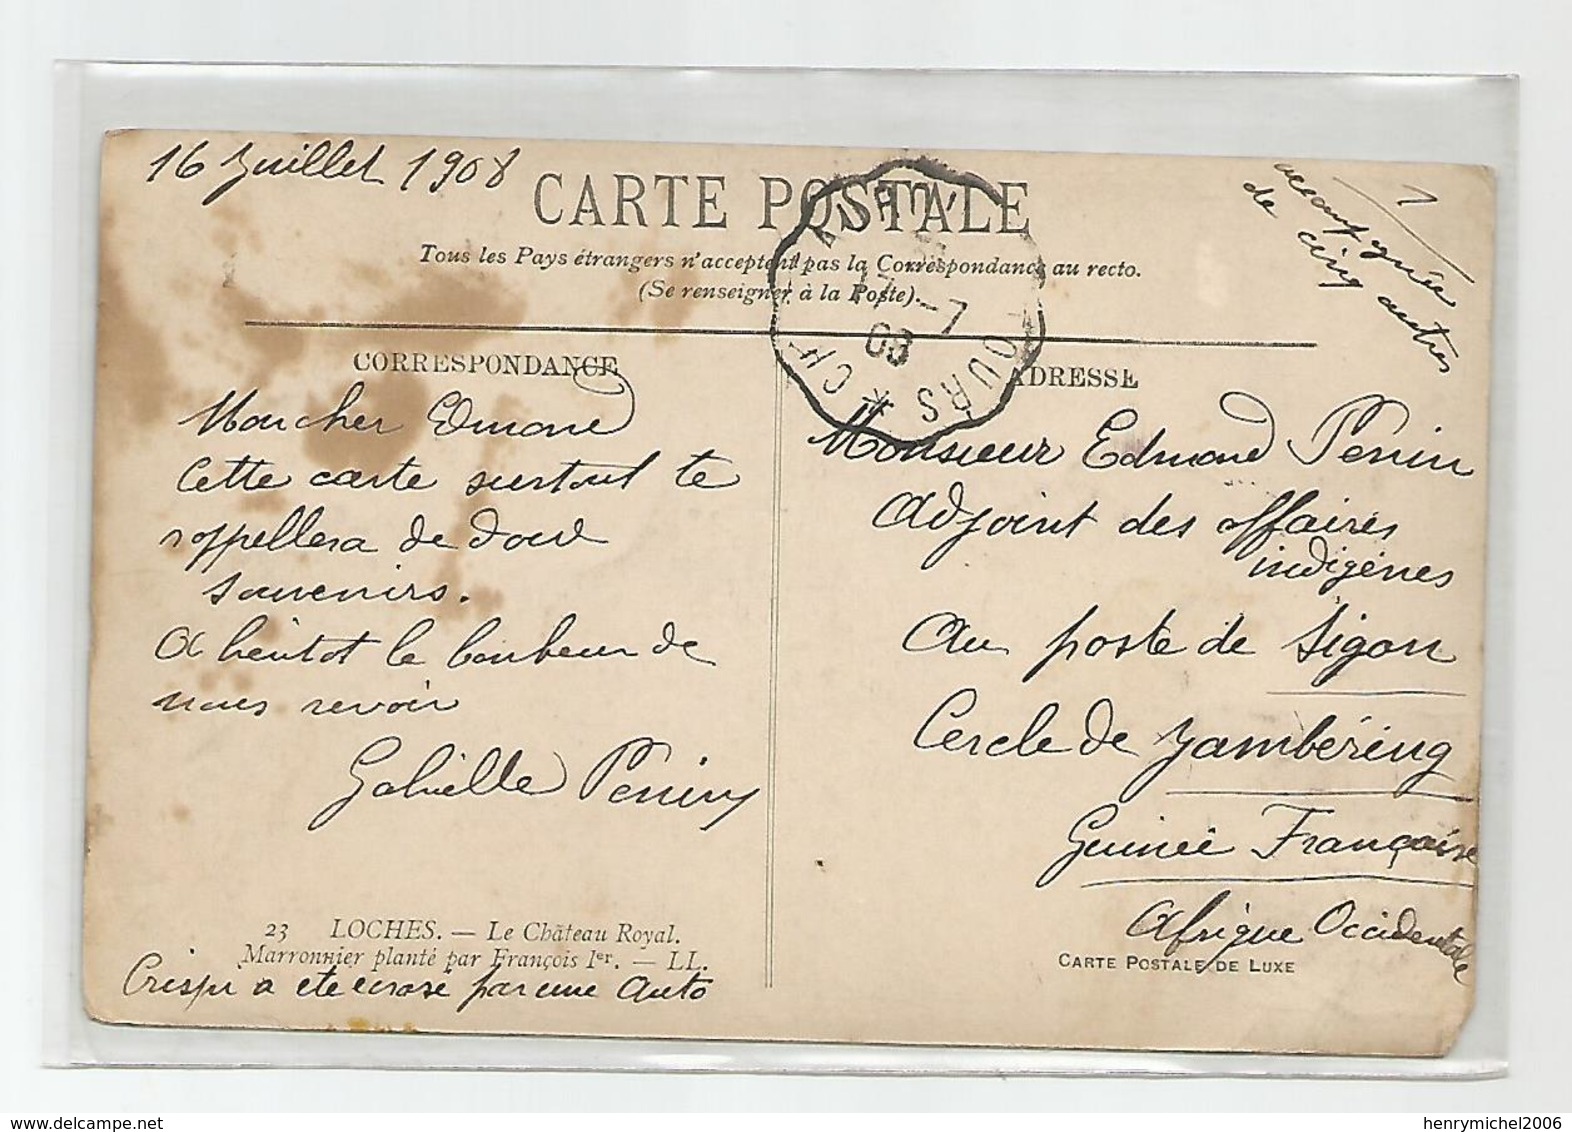 16 Juillet 1908
CARTE POSTALE
Tous les Pays étrangers n'acceptent pas la Correspondance au recto.
(Se renseigner à la Poste).
accompagnée
de cinq autres
1
17 - 7
08
TOURS
CORRESPONDANCE
ADRESSE
Mon cher Edmond
Cette carte surtout te
rappellera de doux
souvenirs.
A bientot le bonheur de
nous revoir
Gabrielle Penin
Monsieur Edmond Penin
Adjoint des affaires
indigènes
Au poste de Sigon
Cercle de Yambéring
Guinée Française
Afrique Occidentale
23 LOCHES. — Le Château Royal.
Marronnier planté par François Ier. — LL.
CARTE POSTALE DE LUXE
Crispi a ete ecrasé par une Auto
henrymichel2006